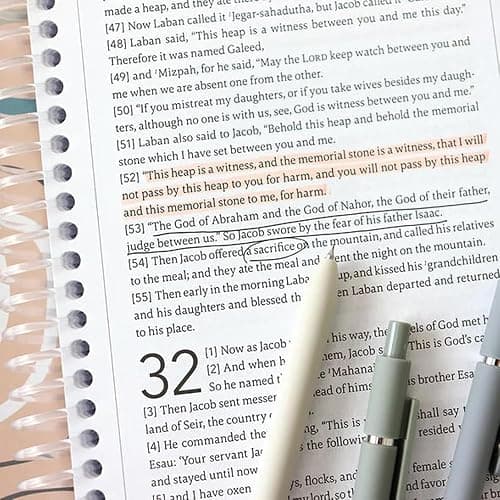 made a heap, and they ate there by
[47] Now Laban called it ¹Jegar-sahadutha, but Jacob called it
[48] Laban said, "This heap is a witness between you and me this day."
Therefore it was named Galeed,
[49] and ¹Mizpah, for he said, "May the LORD keep watch between you and
me when we are absent one from the other.
[50] "If you mistreat my daughters, or if you take wives besides my daugh-
ters, although no one is with us, see, God is witness between you and me."
[51] Laban also said to Jacob, "Behold this heap and behold the memorial
stone which I have set between you and me.
[52] "This heap is a witness, and the memorial stone is a witness, that I will
not pass by this heap to you for harm, and you will not pass by this heap
and this memorial stone to me, for harm.
[53] "The God of Abraham and the God of Nahor, the God of their father,
judge between us." So Jacob swore by the fear of his father Isaac.
[54] Then Jacob offered a sacrifice on the mountain, and called his relatives
to the meal; and they ate the meal and spent the night on the mountain.
[55] Then early in the morning Laba up, and kissed his ¹grandchildren
and his daughters and blessed th en Laban departed and returned
to his place.
32 [1] Now as Jacob his way, the els of God met h
[2] And when h hem, Jacob s "This is God's ca
So he named t ¹Mahana
[3] Then Jacob sent messen ead of hims is brother Esau
land of Seir, the country
[4] He commanded the ng, "This is shall say
Esau: 'Your servant Ja the followi resided
and stayed until now
[5] and I have oxen ys, flocks, and female s
my lord, so th nd favor